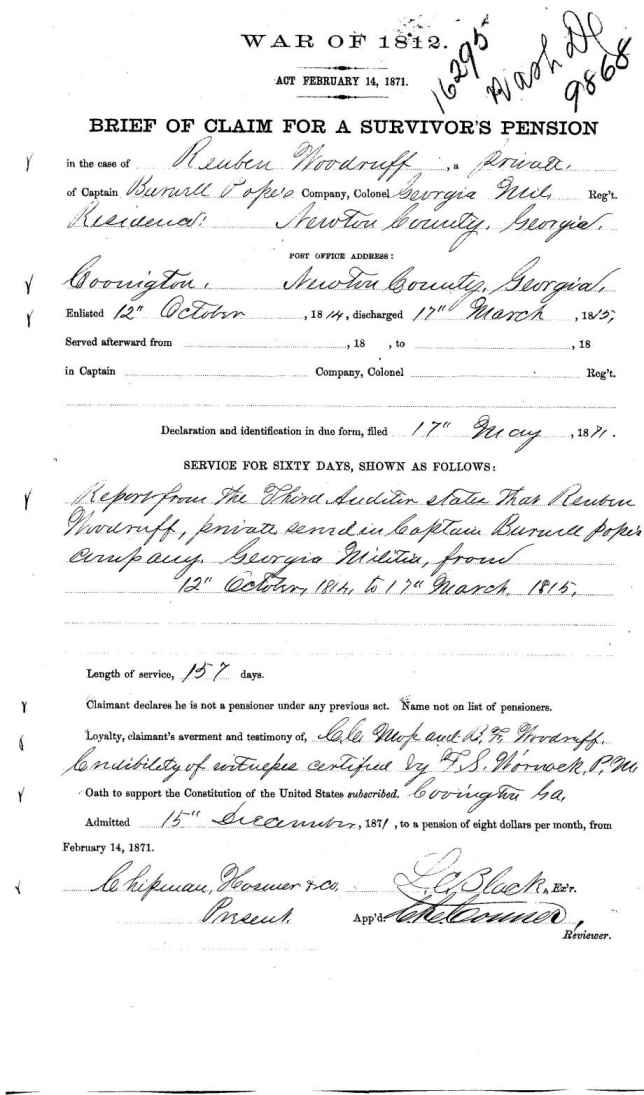 WAR OF 1812.
16295
Wash DC
9868
ACT FEBRUARY 14, 1871.
BRIEF OF CLAIM FOR A SURVIVOR'S PENSION
in the case of Reuben Woodruff, a private.
of Captain Burwell Pope's Company, Colonel Georgia Mil. Reg't.
Residence: Newton County, Georgia.
POST OFFICE ADDRESS:
Covington. Newton County, Georgia.
Enlisted 12" October, 1814, discharged 17" March, 1815,
Served afterward from , 18 , to , 18
in Captain Company, Colonel Reg't.
Declaration and identification in due form, filed 17" May, 1871.
SERVICE FOR SIXTY DAYS, SHOWN AS FOLLOWS:
Report from the Third Auditor states that Reuben
Woodruff, private served in Captain Burwell Pope's
company. Georgia Militia, from
12" October, 1814, to 17" March, 1815.
Length of service, 157 days.
Claimant declares he is not a pensioner under any previous act. Name not on list of pensioners.
Loyalty, claimant's averment and testimony of, C.C. and B. F. Woodruff.
Credibility of witnesses certified by F. S. Womack, P. M
Oath to support the Constitution of the United States subscribed. Covington Ga.
Admitted 15" December, 1871, to a pension of eight dollars per month, from
February 14, 1871.
Chipman, Hosmer & Co. L. C. Black, Ex'r.
Present. App'd:
Reviewer.